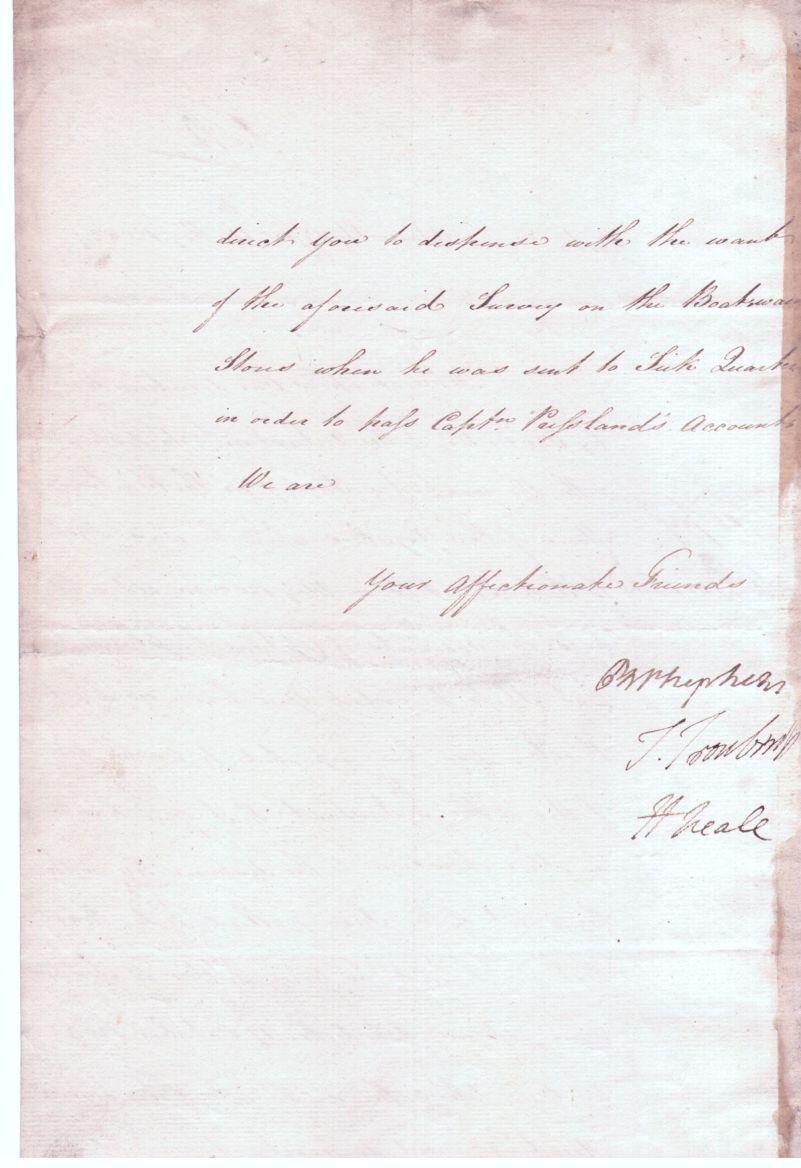 direct you to dispense with the want
of the aforesaid Survey on the Boatswain
Stores when he was sent to Sick Quarters
in order to pass Captn. Pressland's Accounts
We are
Your Affectionate Friends
Ph Stephens
T. Troubridge
H Neale